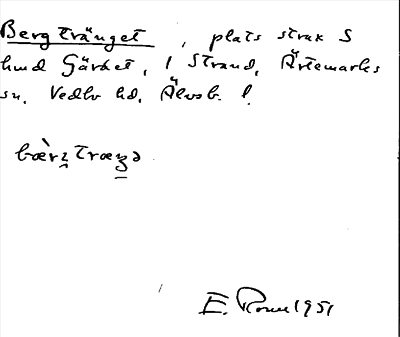 Bergtränget, plats strax S
hmd Gärdet, i Strand, Ärtemarks
sn. Vedbo hd. Älvsb. l.
bærztræzə
E. Rom 1951